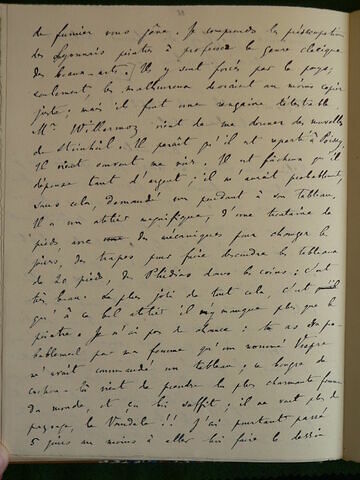 de fumier vous gêne. Je comprends la préoccupation
des Lyonnais peintres à professer le genre classique
des beaux-arts. Ils y sont forcés par le pays,
seulement, les malheureux devraient au moins copier
juste; mais il faut une rengaine détestable.
Mme Willermoz vient de me donner des nouvelles
de Steinheil. Il paraît qu'il est reparti à Poissy,
Il vient souvent me voir. Il est fâcheux qu'il
dépense tant d'argent; il m'aurait probablement,
sans cela, demandé un pendant à son tableau,
Il a un atelier magnifique, d'une trentaine de
pieds, avec des mécaniques pour changer les
jours, des trapes pour faire descendre les tableaux
de 20 pieds, des Phidias dans les coins; c'est
très beau. Le plus joli de tout cela, c'est
qu'à ce bel atelier il n'y manque plus que le
peintre. Je n'ai pas de chance: tu as du pro-
bablement par ma femme qu'un nommé Vespre
m'avait commandé un tableau; ce bougre de
cochon-là vient de prendre la plus charmante femme
du monde, et ça lui suffit; il ne veut plus de
paysage, le Vandale!! J'ai pourtant passé
5 jours au moins à aller lui faire le dessin